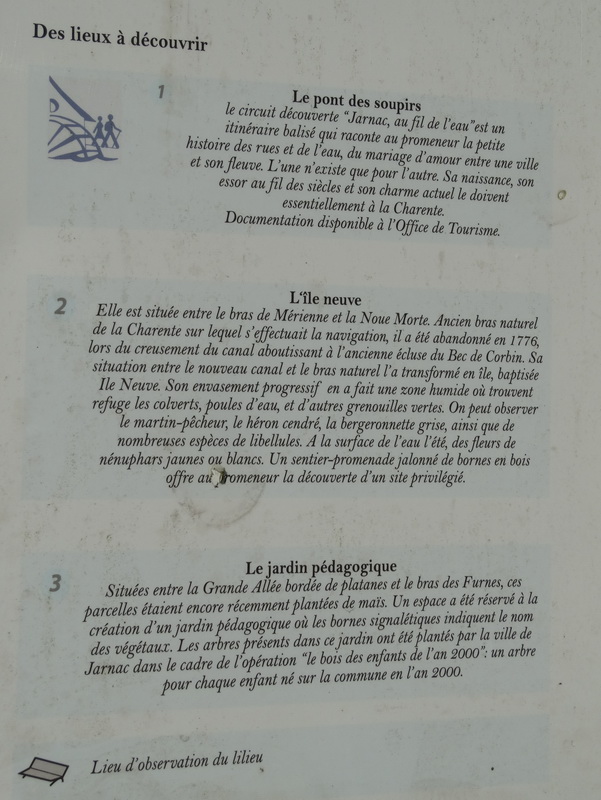 Des lieux à découvrir
1
Le pont des soupirs
le circuit découverte "Jarnac, au fil de l'eau"est un
itinéraire balisé qui raconte au promeneur la petite
histoire des rues et de l'eau, du mariage d'amour entre une ville
et son fleuve. L'une n'existe que pour l'autre. Sa naissance, son
essor au fil des siècles et son charme actuel le doivent
essentiellement à la Charente.
Documentation disponible à l'Office de Tourisme.
2
L'île neuve
Elle est située entre le bras de Mérienne et la Noue Morte. Ancien bras naturel
de la Charente sur lequel s'effectuait la navigation, il a été abandonné en 1776,
lors du creusement du canal aboutissant à l'ancienne écluse du Bec de Corbin. Sa
situation entre le nouveau canal et le bras naturel l'a transformé en île, baptisée
Ile Neuve. Son envasement progressif en a fait une zone humide où trouvent
refuge les colverts, poules d'eau, et d'autres grenouilles vertes. On peut observer
le martin-pêcheur, le héron cendré, la bergeronnette grise, ainsi que de
nombreuses espèces de libellules. A la surface de l'eau l'été, des fleurs de
nénuphars jaunes ou blancs. Un sentier-promenade jalonné de bornes en bois
offre au promeneur la découverte d'un site privilégié.
3
Le jardin pédagogique
Situées entre la Grande Allée bordée de platanes et le bras des Furnes, ces
parcelles étaient encore récemment plantées de maïs. Un espace a été réservé à la
création d'un jardin pédagogique où les bornes signalétiques indiquent le nom
des végétaux. Les arbres présents dans ce jardin ont été plantés par la ville de
Jarnac dans le cadre de l'opération "le bois des enfants de l'an 2000": un arbre
pour chaque enfant né sur la commune en l'an 2000.
Lieu d'observation du lilieu